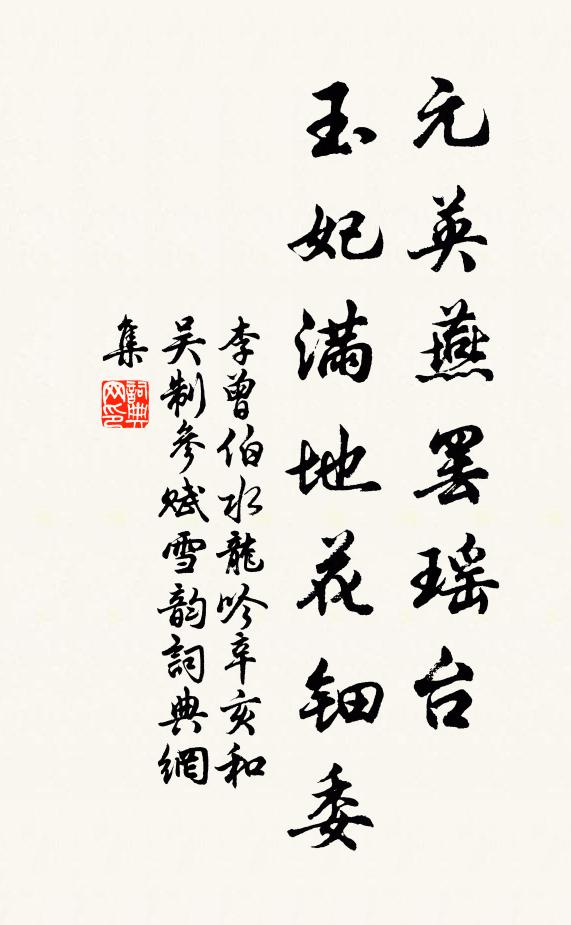 元英燕罢瑶台
玉妃满地花钿委
李曾伯水龍吟辛亥和
吴制参赋雪韵詞典網
集
詞典网印